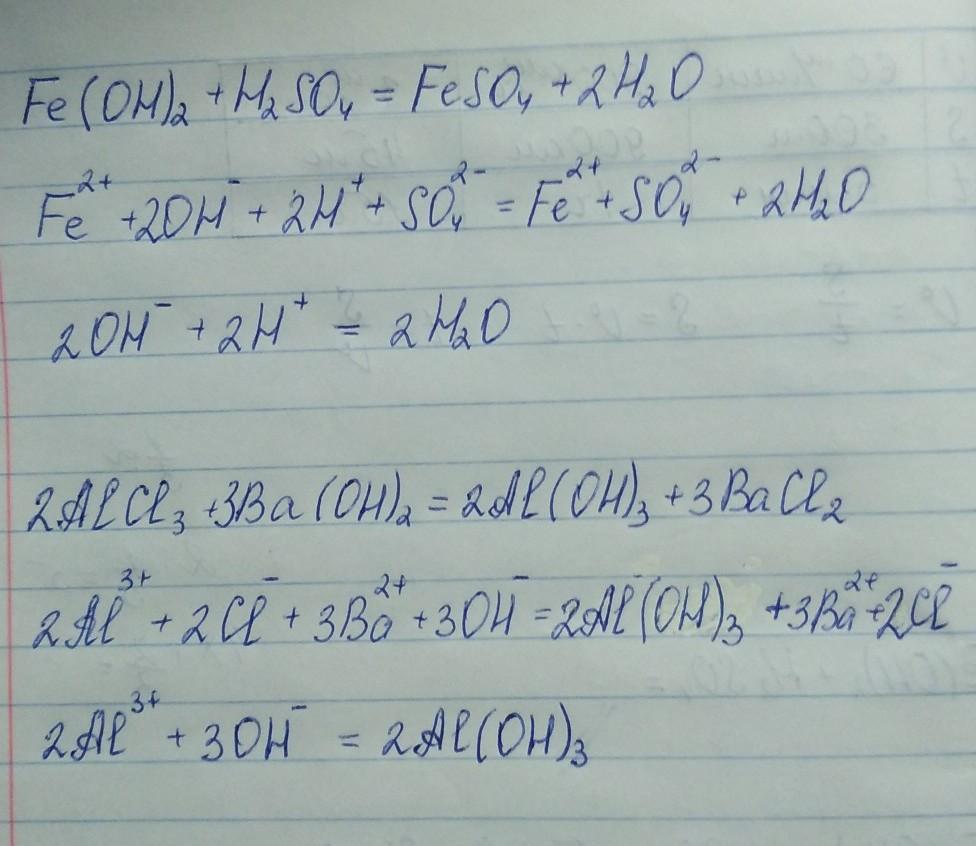 Fe(OH)₂ + H₂SO₄ = FeSO₄ + 2H₂O
Fe²⁺ + 2OH⁻ + 2H⁺ + SO₄²⁻ = Fe²⁺ + SO₄²⁻ + 2H₂O
2OH⁻ + 2H⁺ = 2H₂O
2AlCl₃ + 3Ba(OH)₂ = 2Al(OH)₃ + 3BaCl₂
2Al³⁺ + 2Cl⁻ + 3Ba²⁺ + 3OH⁻ = 2Al(OH)₃ + 3Ba²⁺ + 2Cl⁻
2Al³⁺ + 3OH⁻ = 2Al(OH)₃